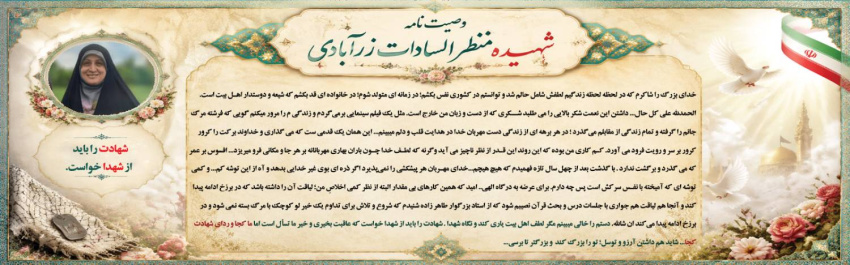 وصیت نامه
شهیده منظر السادات زرآبادی
شهادت را باید
از شهدا خواست.
خدای بزرگ را شاکرم که در لحظه لحظه زندگیم لطفش شامل حالم شد و توانستم در کشوری نفس بکشم؛ در زمانه ای متولد شوم؛ در خانواده ای قد بکشم که شیعه و دوستدار اهل بیت است.
الحمدلله علی کل حال... داشتن این نعمت شکر بالایی را می طلبد شکری که از دست و زبان من خارج است. مثل یک فیلم سینمایی برمی گردم و زندگی م را مرور میکنم گویی که فرشته مرگ
جانم را گرفته و تمام زندگی از مقابلم می گذرد؛ در هر برهه ای از زندگی دست مهربان خدا در هدایت قلب و دلم میبینم... این همان یک قدمی ست که می گذاری و خداوند برکت را کرور
کرور بر سر و رویت فرود می آورد. کم کاری من بوده که این روند این قدر از نظر ناچیز می آید وگرنه که لطف خدا چون باران بهاری مهربانانه بر هر جا و مکانی فرو میریزد... افسوس بر عمر
که می گذرد و برگشت ندارد. با گذشت بعد از چهل سال تازه فهمیدم که هیچ هیچم...خدای مهربان هر پیشکشی را نمی پذیرد اگر ذره ای بوی غیر خدایی بدهد و آه از این توشه کم... و کمی
توشه ای که آمیخته با نفس سرکش است پس چه دارم. برای عرضه به درگاه الهی.. امید که همین کارهای بی مقدار البته از نظر کمی اخلاص من؛ لیاقت آن را داشته باشد که در برزخ ادامه پیدا
کند و آنجا هم لیاقت هم جواری با جلسات درس و بحث قرآن نصیبم شود که از استاد بزرگوار طاهر زاده شنیدم که شروع و تلاش برای تداوم یک خیر لو کوچک با مرگ بسته نمی شود و در
برزخ ادامه پیدا می کند ان شالله. دستم را خالی میبینم مگر لطف اهل بیت یاری کند و نگاه شهدا. شهادت را باید از شهدا خواست که عاقبت بخیری و خیر ما تسأل است اما ما کجا و ردای شهادت
کجا... شاید هم داشتن آرزو و توسل؛ تو را بزرگ کند و بزرگتر تا برسی...